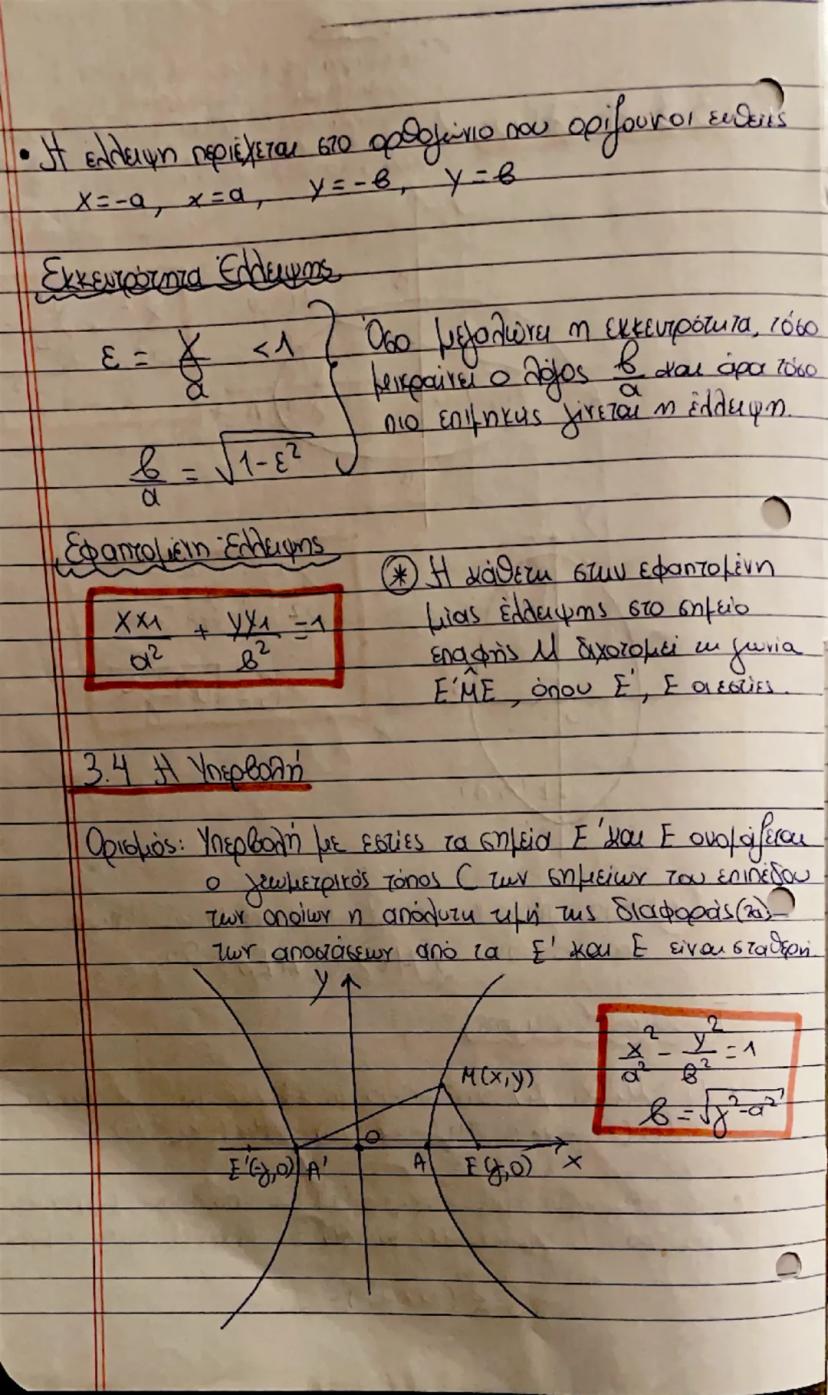 • Η έλλειψη περιέχεται στο ορθογώνιο που ορίζουν οι ευθείες
x=-α, x=α, y=-β, y=β
Εκκεντρότητα Έλλειψης
ε = γ/α < 1
Όσο μεγαλώνει η εκκεντρότητα, τόσο
μικραίνει ο λόγος β/α και άρα τόσο
πιο επιμήκης γίνεται η έλλειψη.
β/α = √1-ε²
Εφαπτομένη Έλλειψης
xx1/α² + yy1/β² = 1
* Η κάθετη στην εφαπτομένη
μίας έλλειψης στο σημείο
επαφής Μ διχοτομεί τη γωνία
Ε'M̂Ε, όπου Ε', Ε οι εστίες.
3.4 Η Υπερβολή
Ορισμός: Υπερβολή με εστίες τα σημεία Ε' και Ε ονομάζεται
ο γεωμετρικός τόπος C των σημείων του επιπέδου
των οποίων η απόλυτη τιμή της διαφοράς (2α)
των αποστάσεων από τα Ε' και Ε είναι σταθερή.
y
x²/α² - y²/β² = 1
M(x,y)
β = √γ²-α²
O
E'(-γ,0) A' A E(γ,0) x